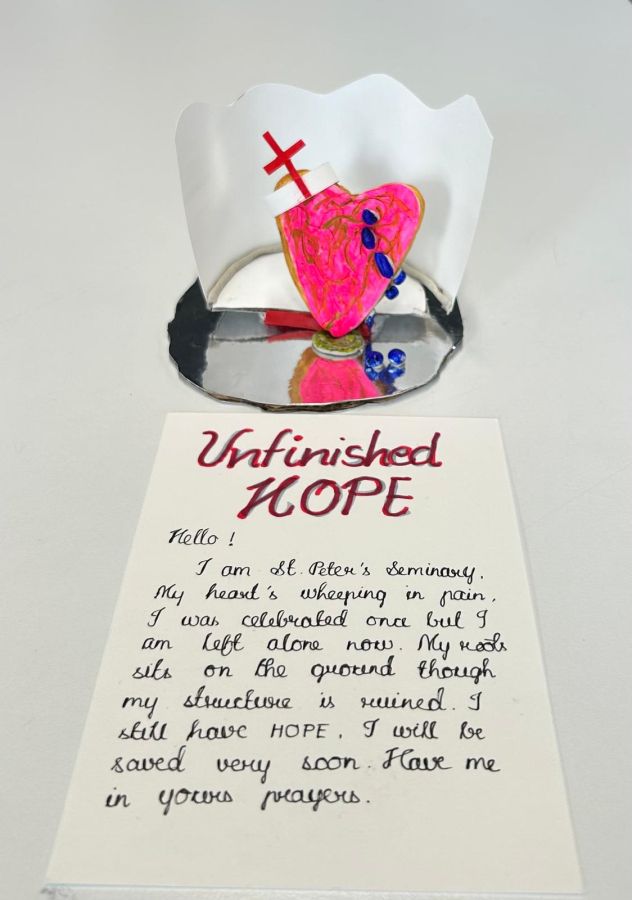 Unfinished
HOPE
Hello !
I am St. Peter's Seminary.
My heart's wheeping in pain.
I was celebrated once but I
am left alone now. My roots
sits on the ground though
my structure is ruined. I
still have HOPE. I will be
saved very soon. Have me
in yours prayers.